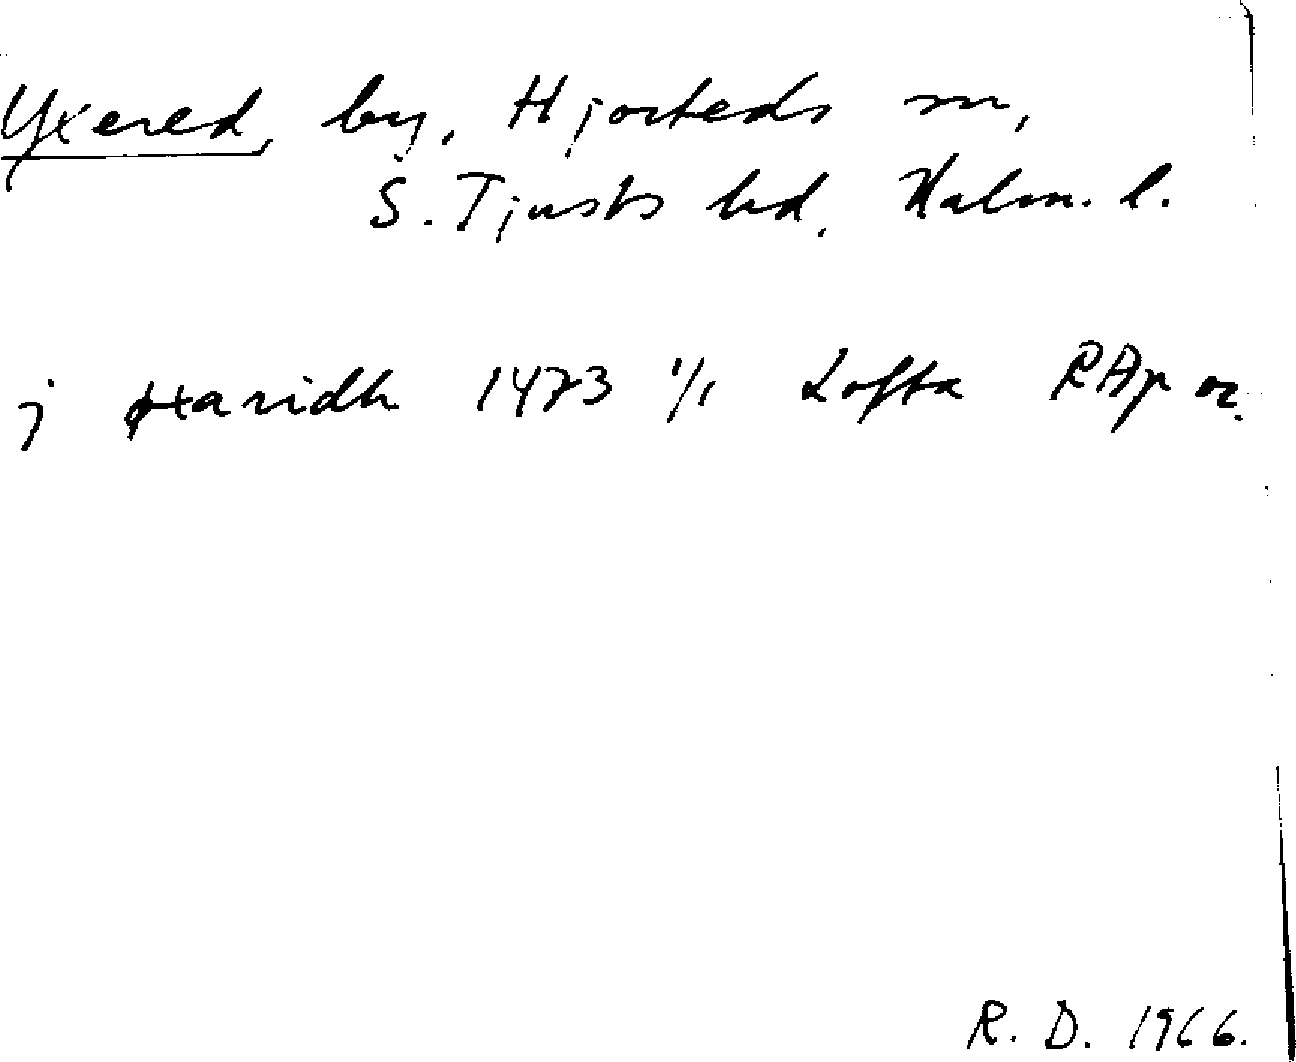 Yxered, by, Hjorteds sn,
S. Tjusts hd, Kalm. l.
j 1473 1/1 Lofta RAp or.
R. D. 1966.